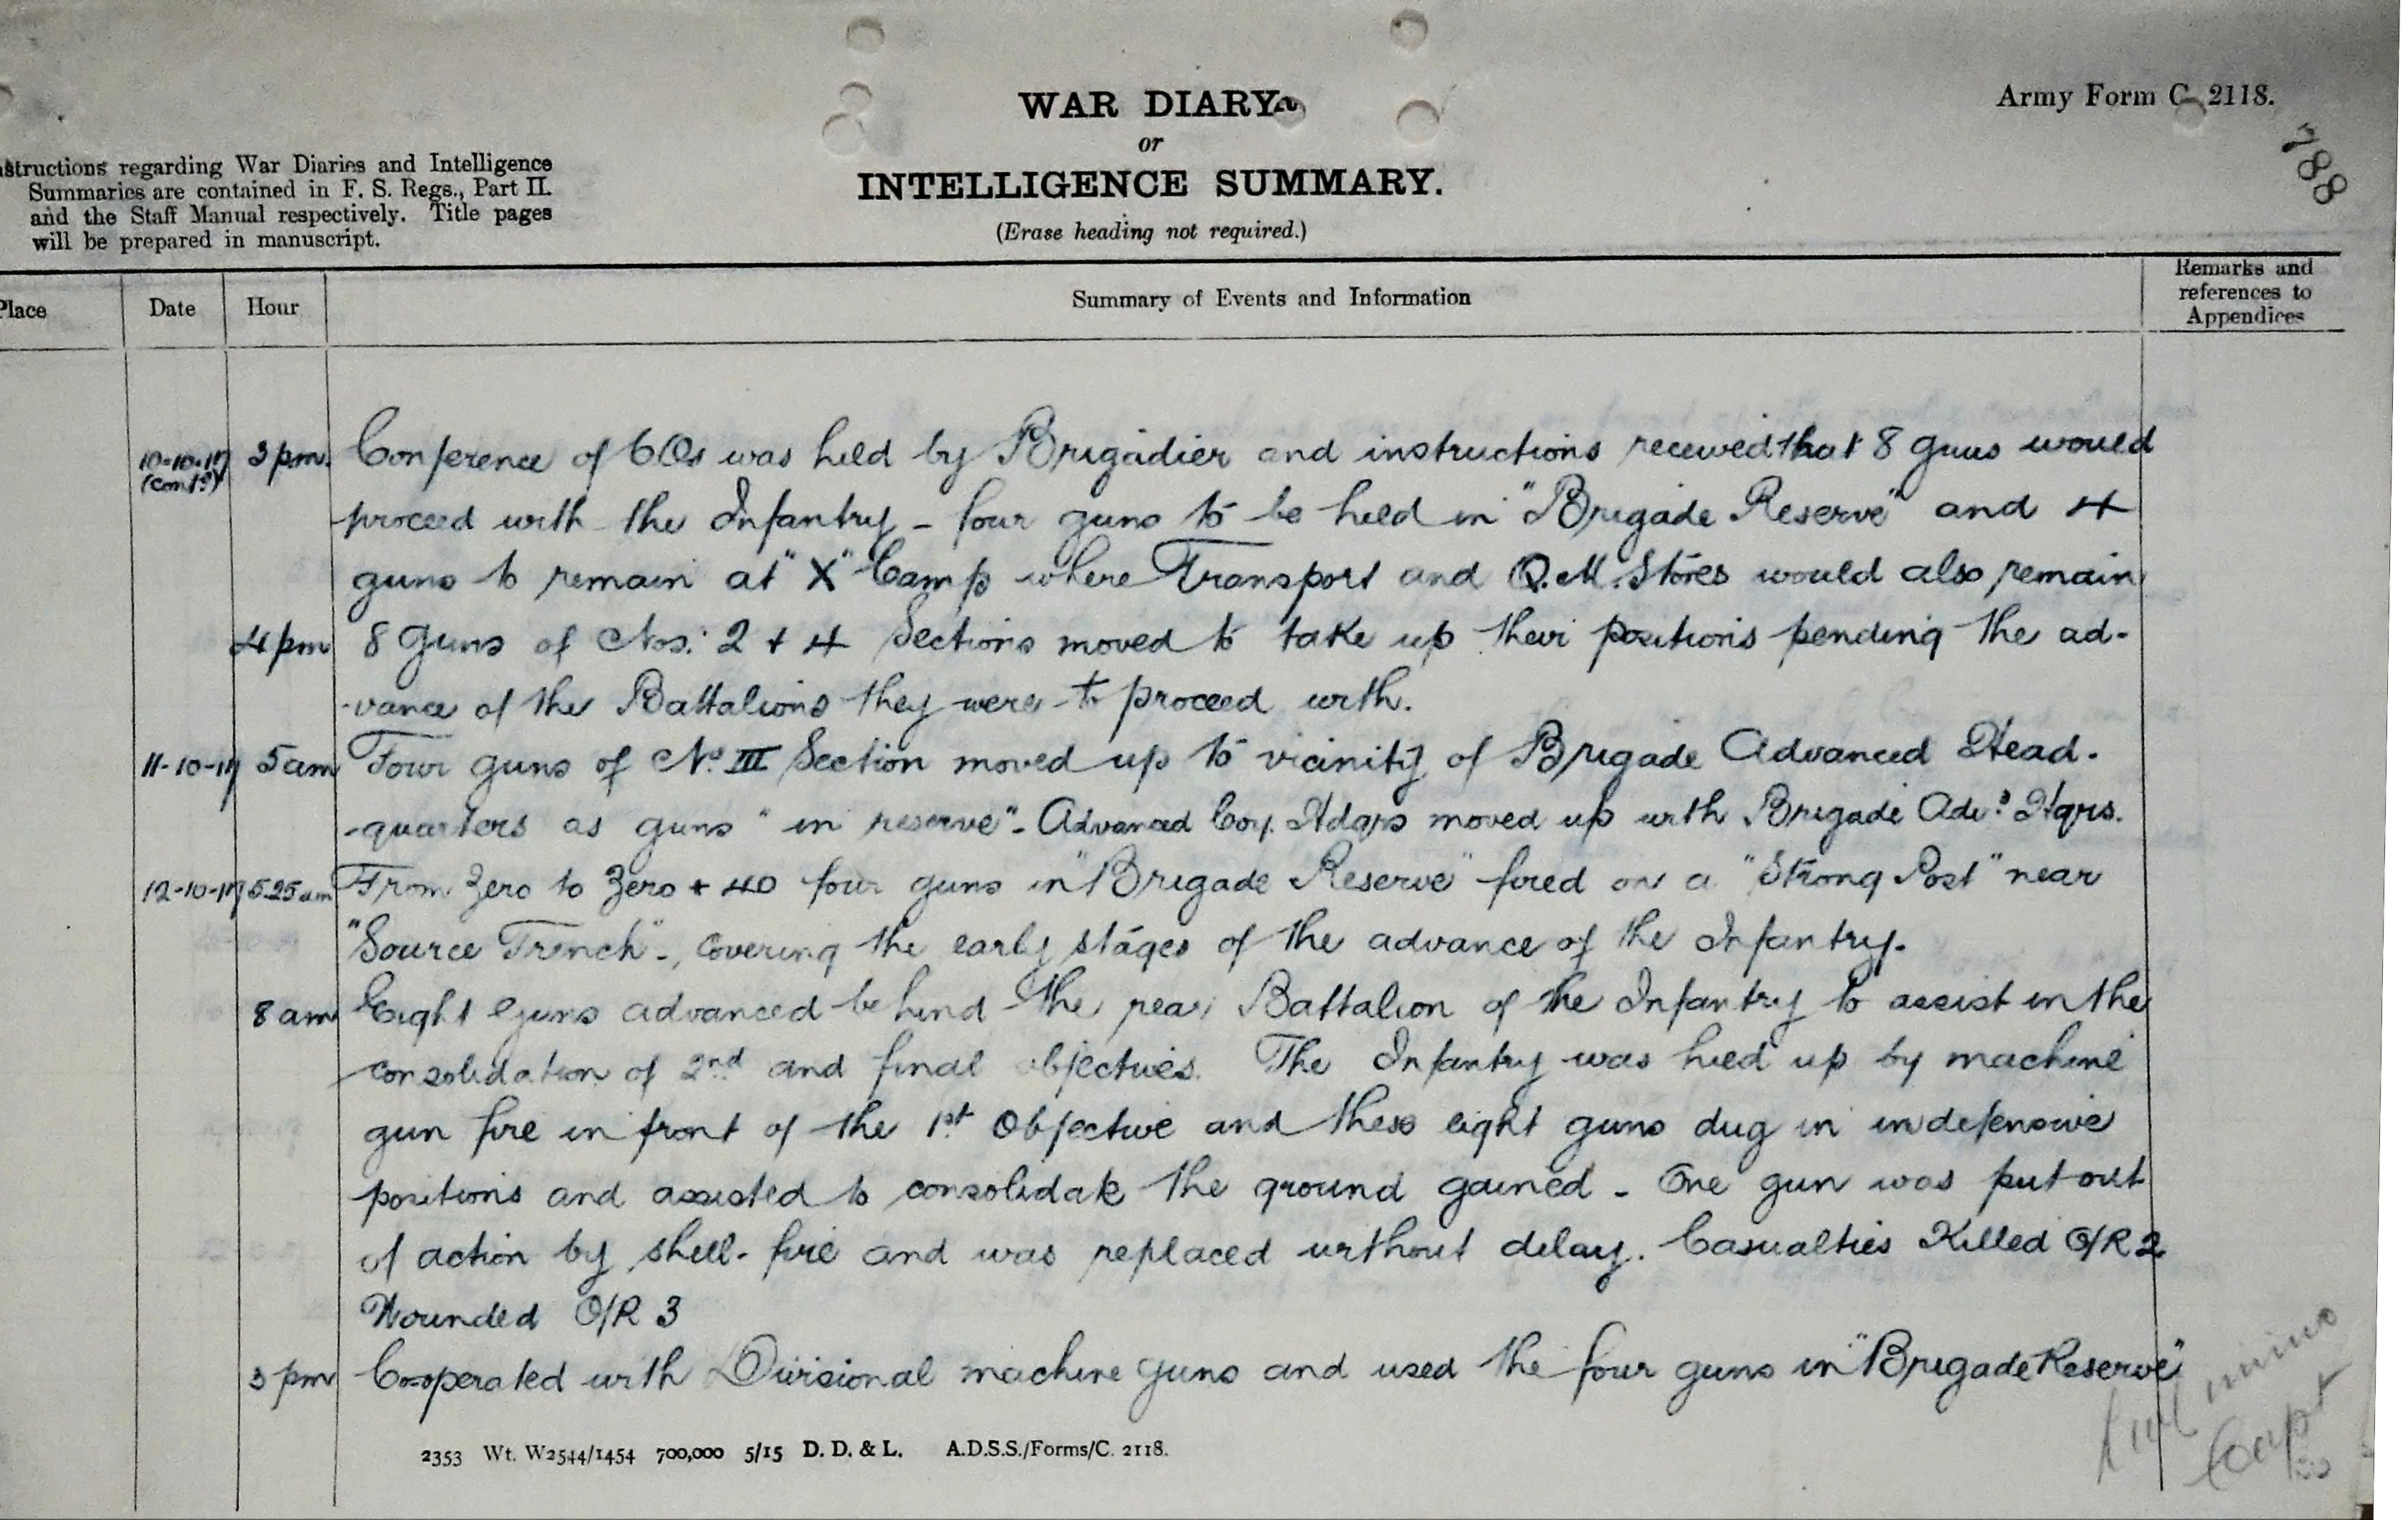 WAR DIARY
or
INTELLIGENCE SUMMARY.
(Erase heading not required.)
Army Form C. 2118.
788
structions regarding War Diaries and Intelligence
Summaries are contained in F. S. Regs., Part II.
and the Staff Manual respectively. Title pages
will be prepared in manuscript.
Place Date Hour Summary of Events and Information Remarks and
references to
Appendices
10-10-17 3 pm. Conference of COs was held by Brigadier and instructions received that 8 guns would
(contd) proceed with the Infantry - four guns to be held in "Brigade Reserve" and 4
guns to remain at "X" Camp where Transport and Q.M. Stores would also remain
4 pm 8 Guns of Nos. 2 + 4 Sections moved to take up their positions pending the ad-
-vance of the Battalions they were to proceed with.
11-10-17 5 am Four guns of No. III Section moved up to vicinity of Brigade Advanced Head-
-quarters as guns "in reserve". Advanced Coy. Hdqrs moved up with Brigade Advd Hqrs.
12-10-17 5.25 am From Zero to Zero + 40 four guns in "Brigade Reserve" fired on a "Strong Post" near
"Source Trench"-, covering the early stages of the advance of the Infantry.
8 am Eight Guns advanced behind the rear Battalion of the Infantry to assist in the
consolidation of 2nd and final objectives. The Infantry was held up by machine
gun fire in front of the 1st Objective and these eight guns dug in in defensive
positions and assisted to consolidate the ground gained - One gun was put out
of action by shell-fire and was replaced without delay. Casualties Killed O/R 2
Wounded O/R 3
3 pm Co-operated with Divisional machine guns and used the four guns in "Brigade Reserve"
Capt
2353 Wt. W2544/1454 700,000 5/15 D. D. & L. A.D.S.S./Forms/C. 2118.